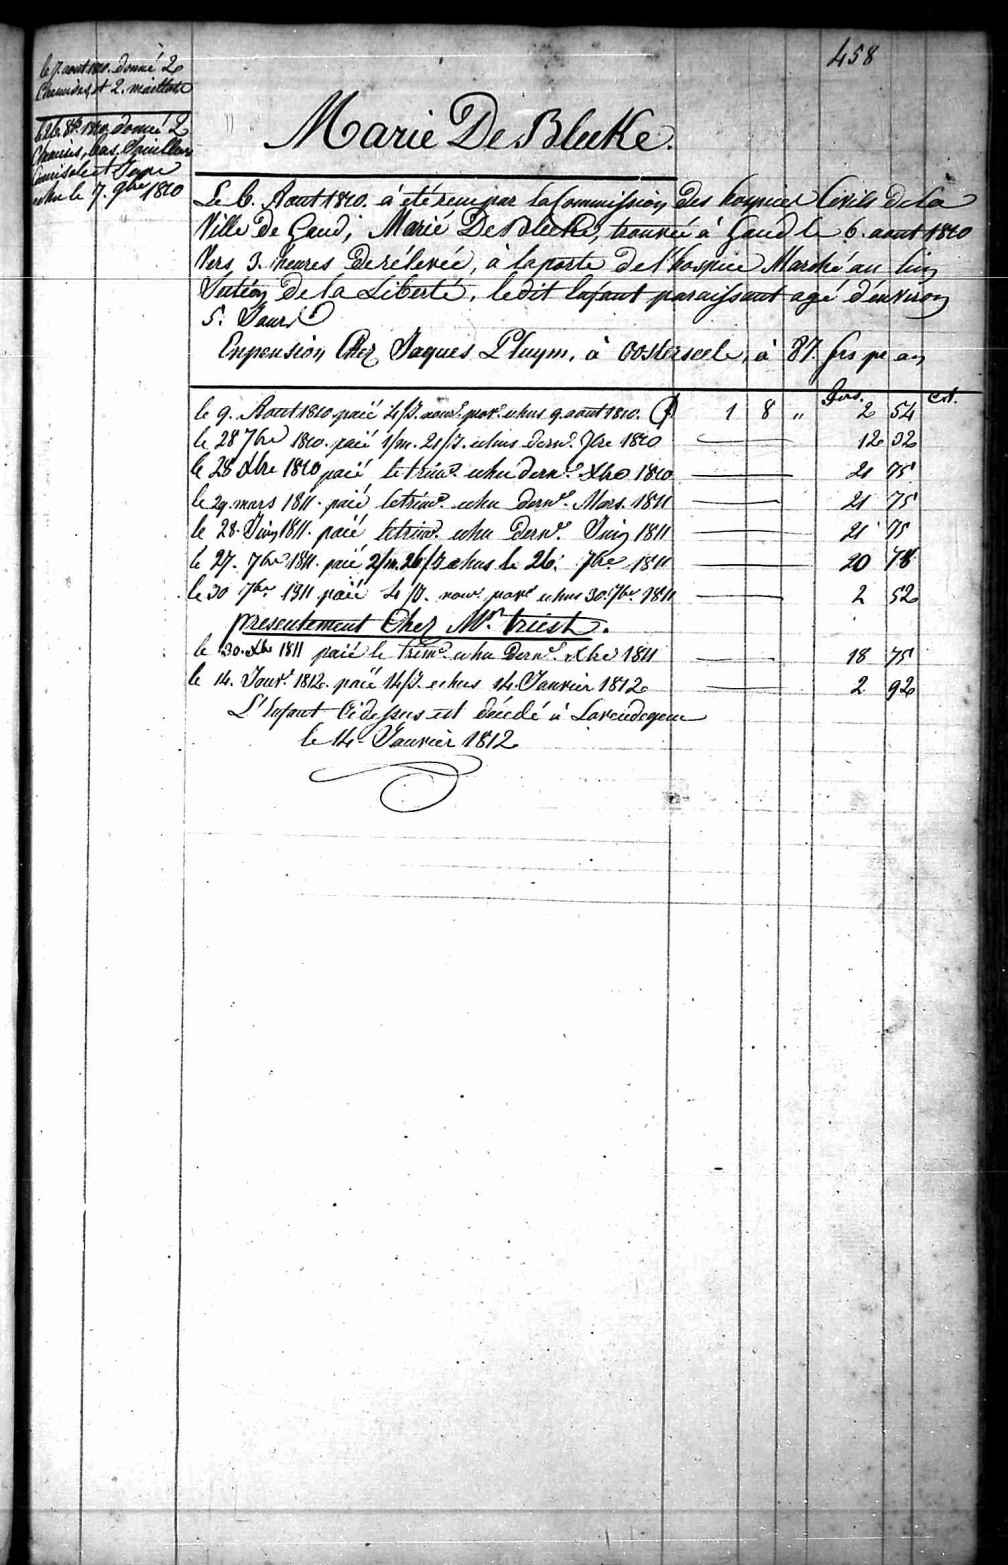 458
le 7. aout 1810. donné 2
Chemises, et 2. maillots
le 26. 8bre 1810, donné 2
Chemises, bas,
Camisole et Jupe
echu le 7. 9bre 1810
Marie De Bleeke.
Le 6. Aout 1810. à été reçu par la Commission des hospices Civils de la
Ville de Gand, Marie De Bleeke, trouvée à Gand le 6. aout 1810
Vers 3. heures de rélevée, à la porte de l'hospice Marché au lin
Section de la Liberté, le dit Enfant paraissant agé d'environ
5. Jours
En pension Chez Jaques Pluym, à Oosterzeele, à 87. frs par an
frs. cts.
le 9. Aout 1810. paié 4/j. nour. prov. echus 9. aout 1810. 1 8 „ 2 54
le 28 7bre 1810. paié 1/m. 21/j. echus dern. 7bre 1810 12 32
le 28 Xbre 1810 paié le trim.e echu dern.r Xbre 1810 21 75
le 29. mars 1811. paié le trim.e echu dern.r Mars. 1811 21 75
le 28. Juin 1811. paié le trim.e echu Dern.r Juin 1811 21 75
le 27. 7bre 1811. paié 2/m. 26/j echus le 26. 7bre 1811 20 78
le 30 7bre 1811 paié 4/j. nour. prov. echus 30. 7bre 1811 2 52
presentement Chez Mr. triest.
le 30. Xbre 1811 paié le trim.e echu Dern.r Xbre 1811 18 75
le 14. Janv.r 1812. paié 14/j. echus 14. Janvier 1812 2 92
L'Enfant Ci dessus est décédé à
le 14. Janvier 1812